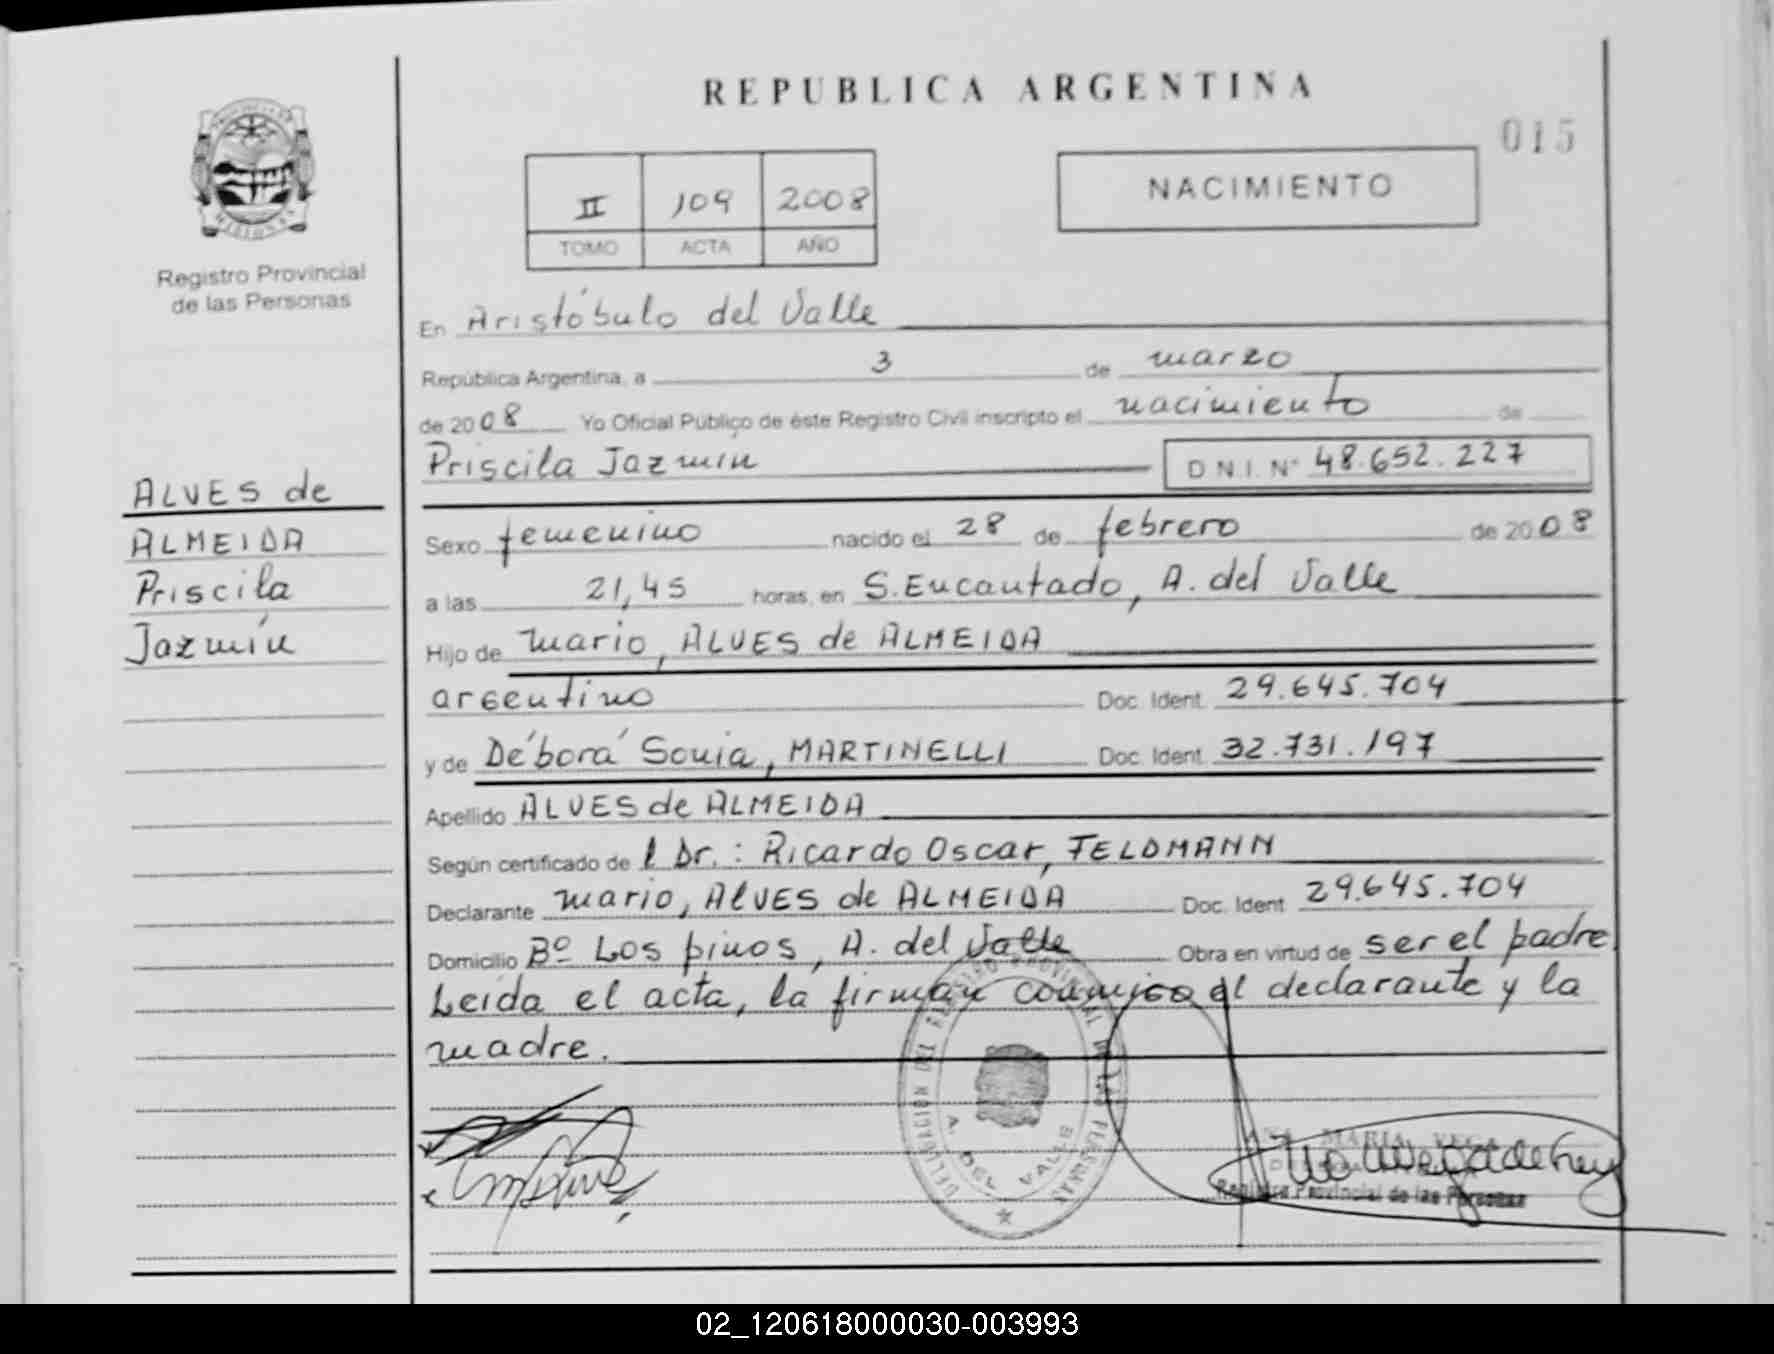 REPUBLICA ARGENTINA
015
II 109 2008
TOMO ACTA AÑO
NACIMIENTO
MISIONES
Registro Provincial
de las Personas
En Aristóbulo del Valle
República Argentina, a 3 de marzo
de 2008 Yo Oficial Público de éste Registro Civil inscripto el nacimiento de
Priscila Jazmín D.N.I. Nº 48.652.227
Sexo femenino nacido el 28 de febrero de 2008
a las 21,45 horas, en S. Encantado, A. del Valle
Hijo de Mario, ALVES de ALMEIDA
argentino Doc. Ident. 29.645.704
y de Débora Sonia, MARTINELLI Doc. Ident. 32.731.197
Apellido ALVES de ALMEIDA
Según certificado de l Dr.: Ricardo Oscar, FELDMANN
Declarante Mario, ALVES de ALMEIDA Doc. Ident 29.645.704
Domicilio Bº Los pinos, A. del Valle Obra en virtud de ser el padre
Leída el acta, la firman conmigo el declarante y la
madre.
ALVES de
ALMEIDA
Priscila
Jazmín
DELEGACION DEL REGISTRO PROVINCIAL DE LAS PERSONAS
A. DEL VALLE
MARIA VEGA
Registro Provincial de las Personas
02_120618000030-003993